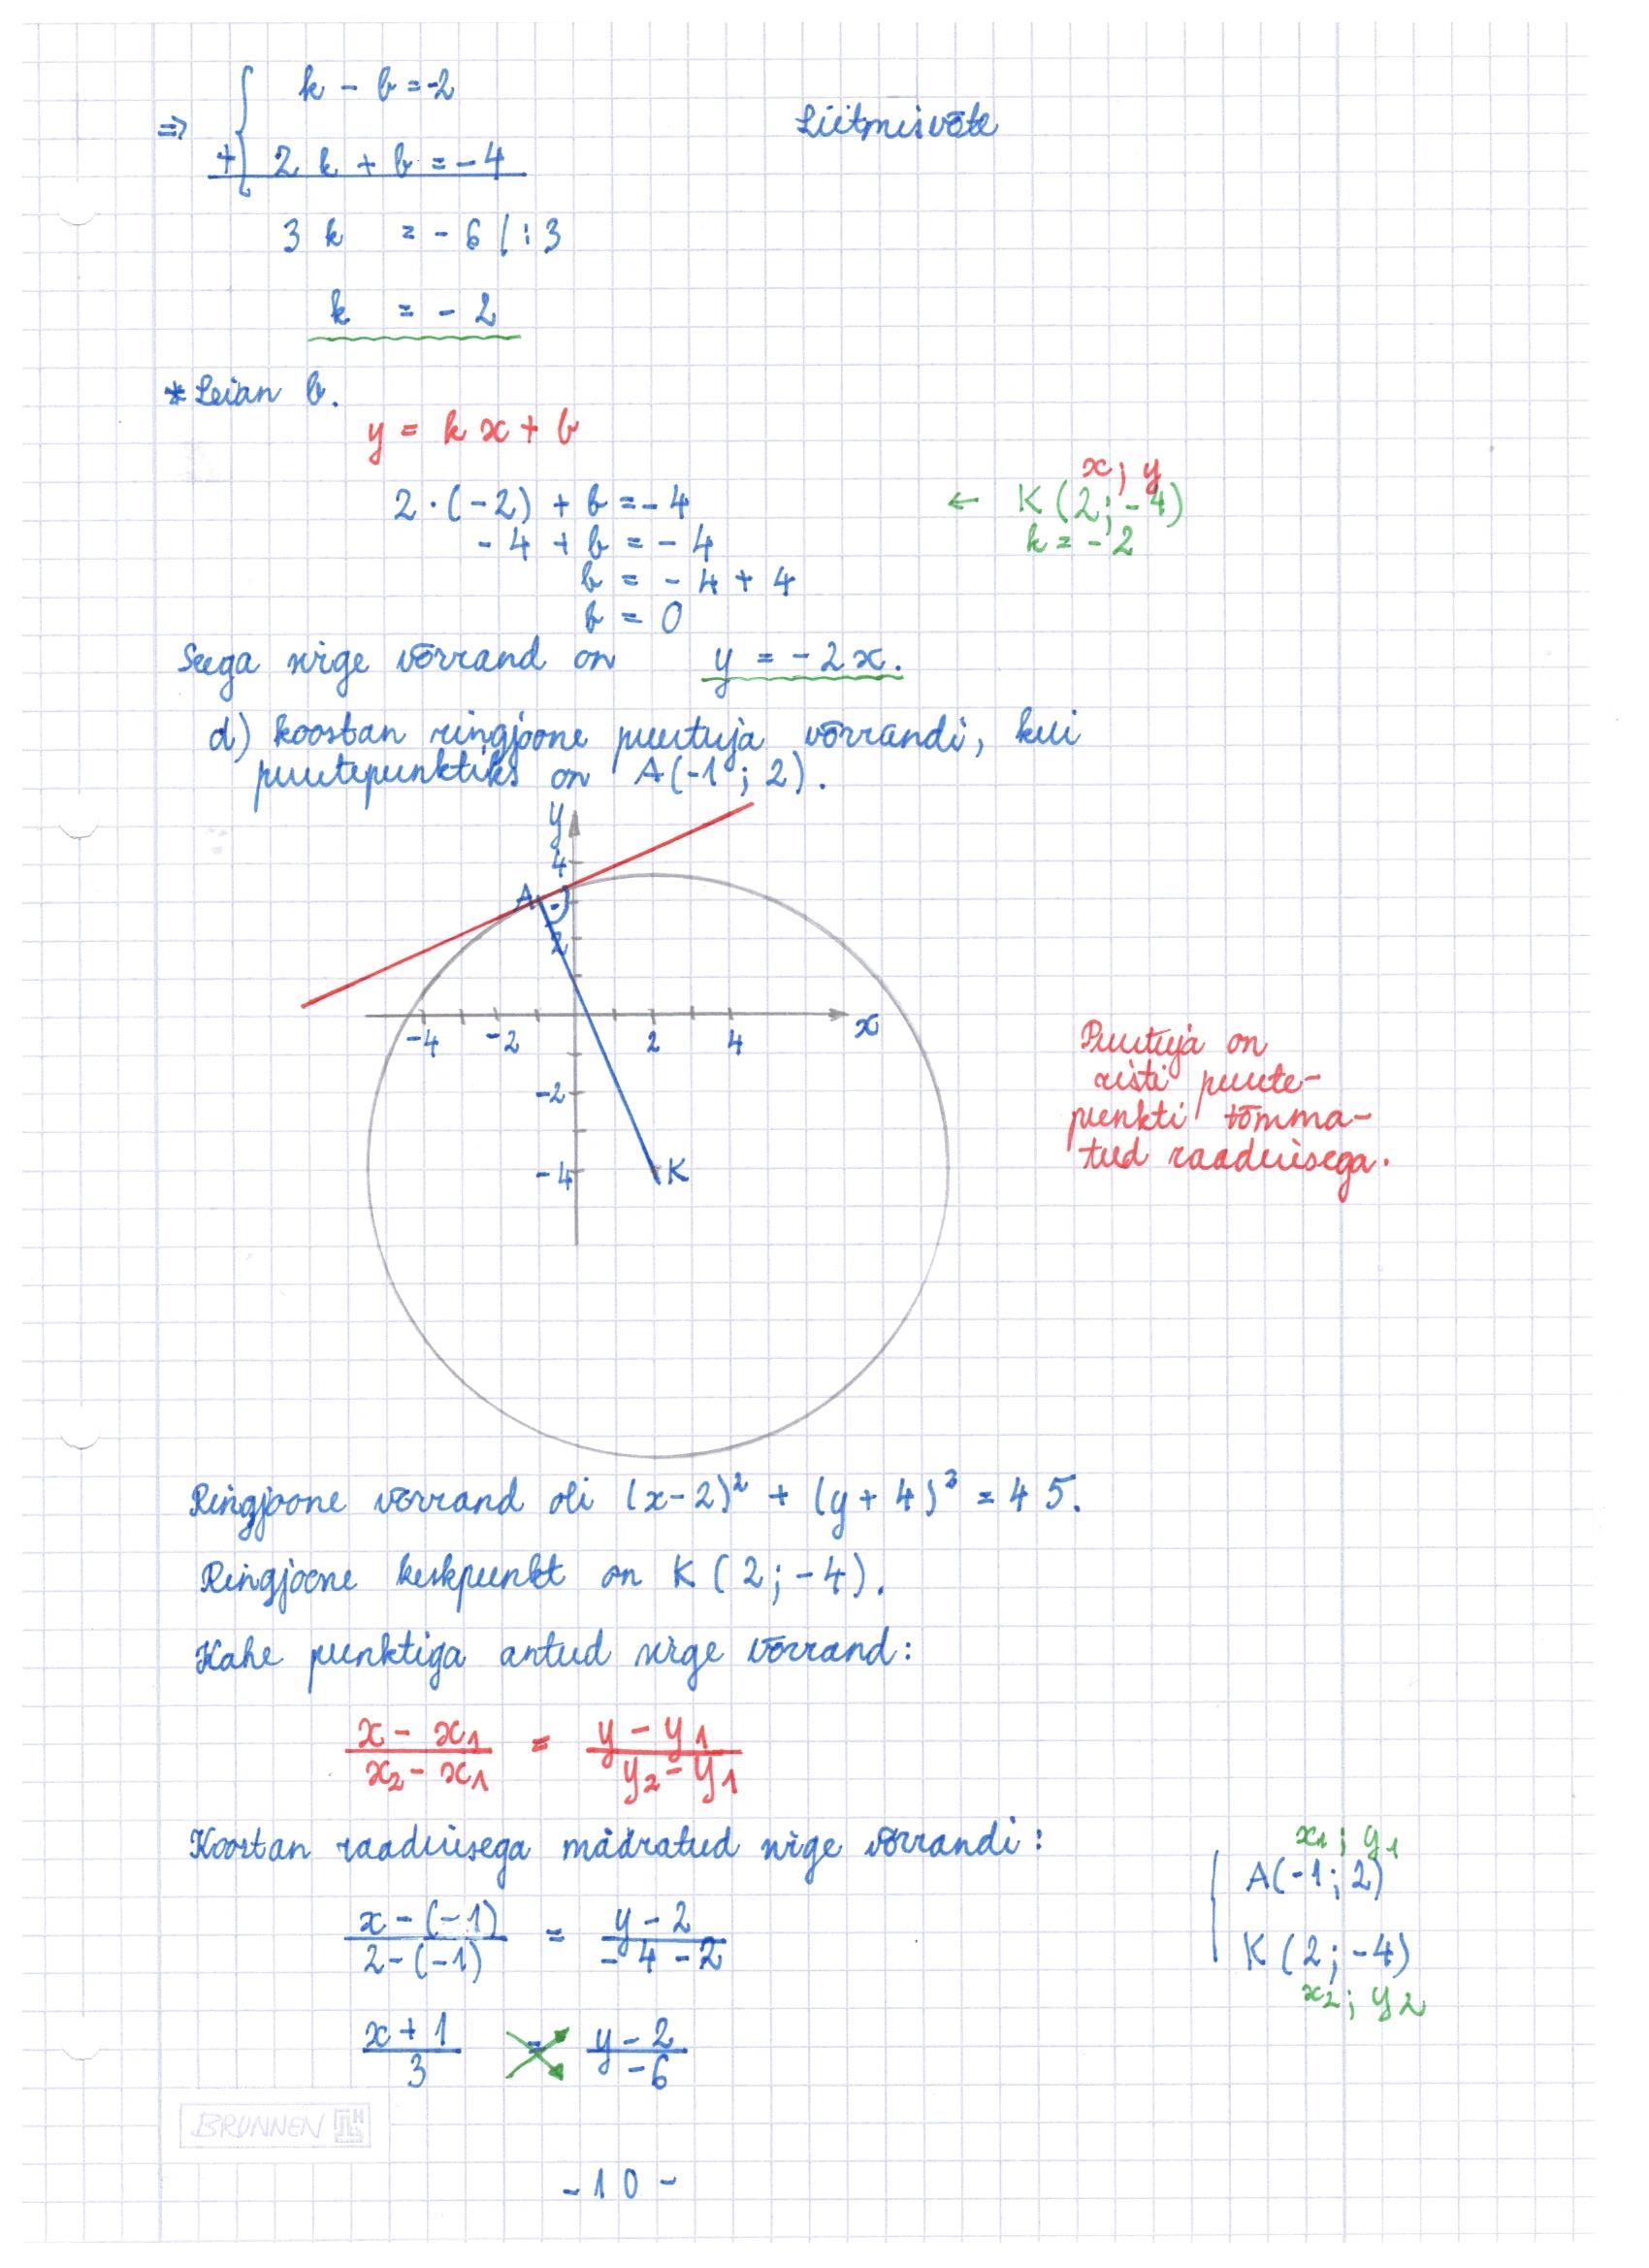 k - b = -2
⇒ Liitmisvõte
+ 2 k + b = - 4
3 k = - 6 | : 3
k = - 2
* Leian b.
y = k x + b
x ; y
2 · (-2) + b = - 4 ← K (2; -4)
- 4 + b = - 4 k = - 2
b = - 4 + 4
b = 0
Seega sirge võrrand on y = - 2 x.
d) koostan ringjoone puutuja võrrandi, kui
puutepunktiks on A(-1 ; 2).
y
4
A
2
-4 -2 2 4 x
-2
-4 K
Puutuja on
risti puute-
punkti tõmma-
tud raadiusega.
Ringjoone võrrand oli (x-2)² + (y + 4)² = 45.
Ringjoone keskpunkt on K (2; -4).
Kahe punktiga antud sirge võrrand:
x - x₁ = y - y₁
x₂ - x₁ y₂ - y₁
Koostan raadiusega määratud sirge võrrandi:
x₁ ; y₁
A(-1; 2)
K (2; -4)
x₂ ; y₂
x - (-1) = y - 2
2 - (-1) - 4 - 2
x + 1 = y - 2
3 - 6
BRUNNEN
- 10 -